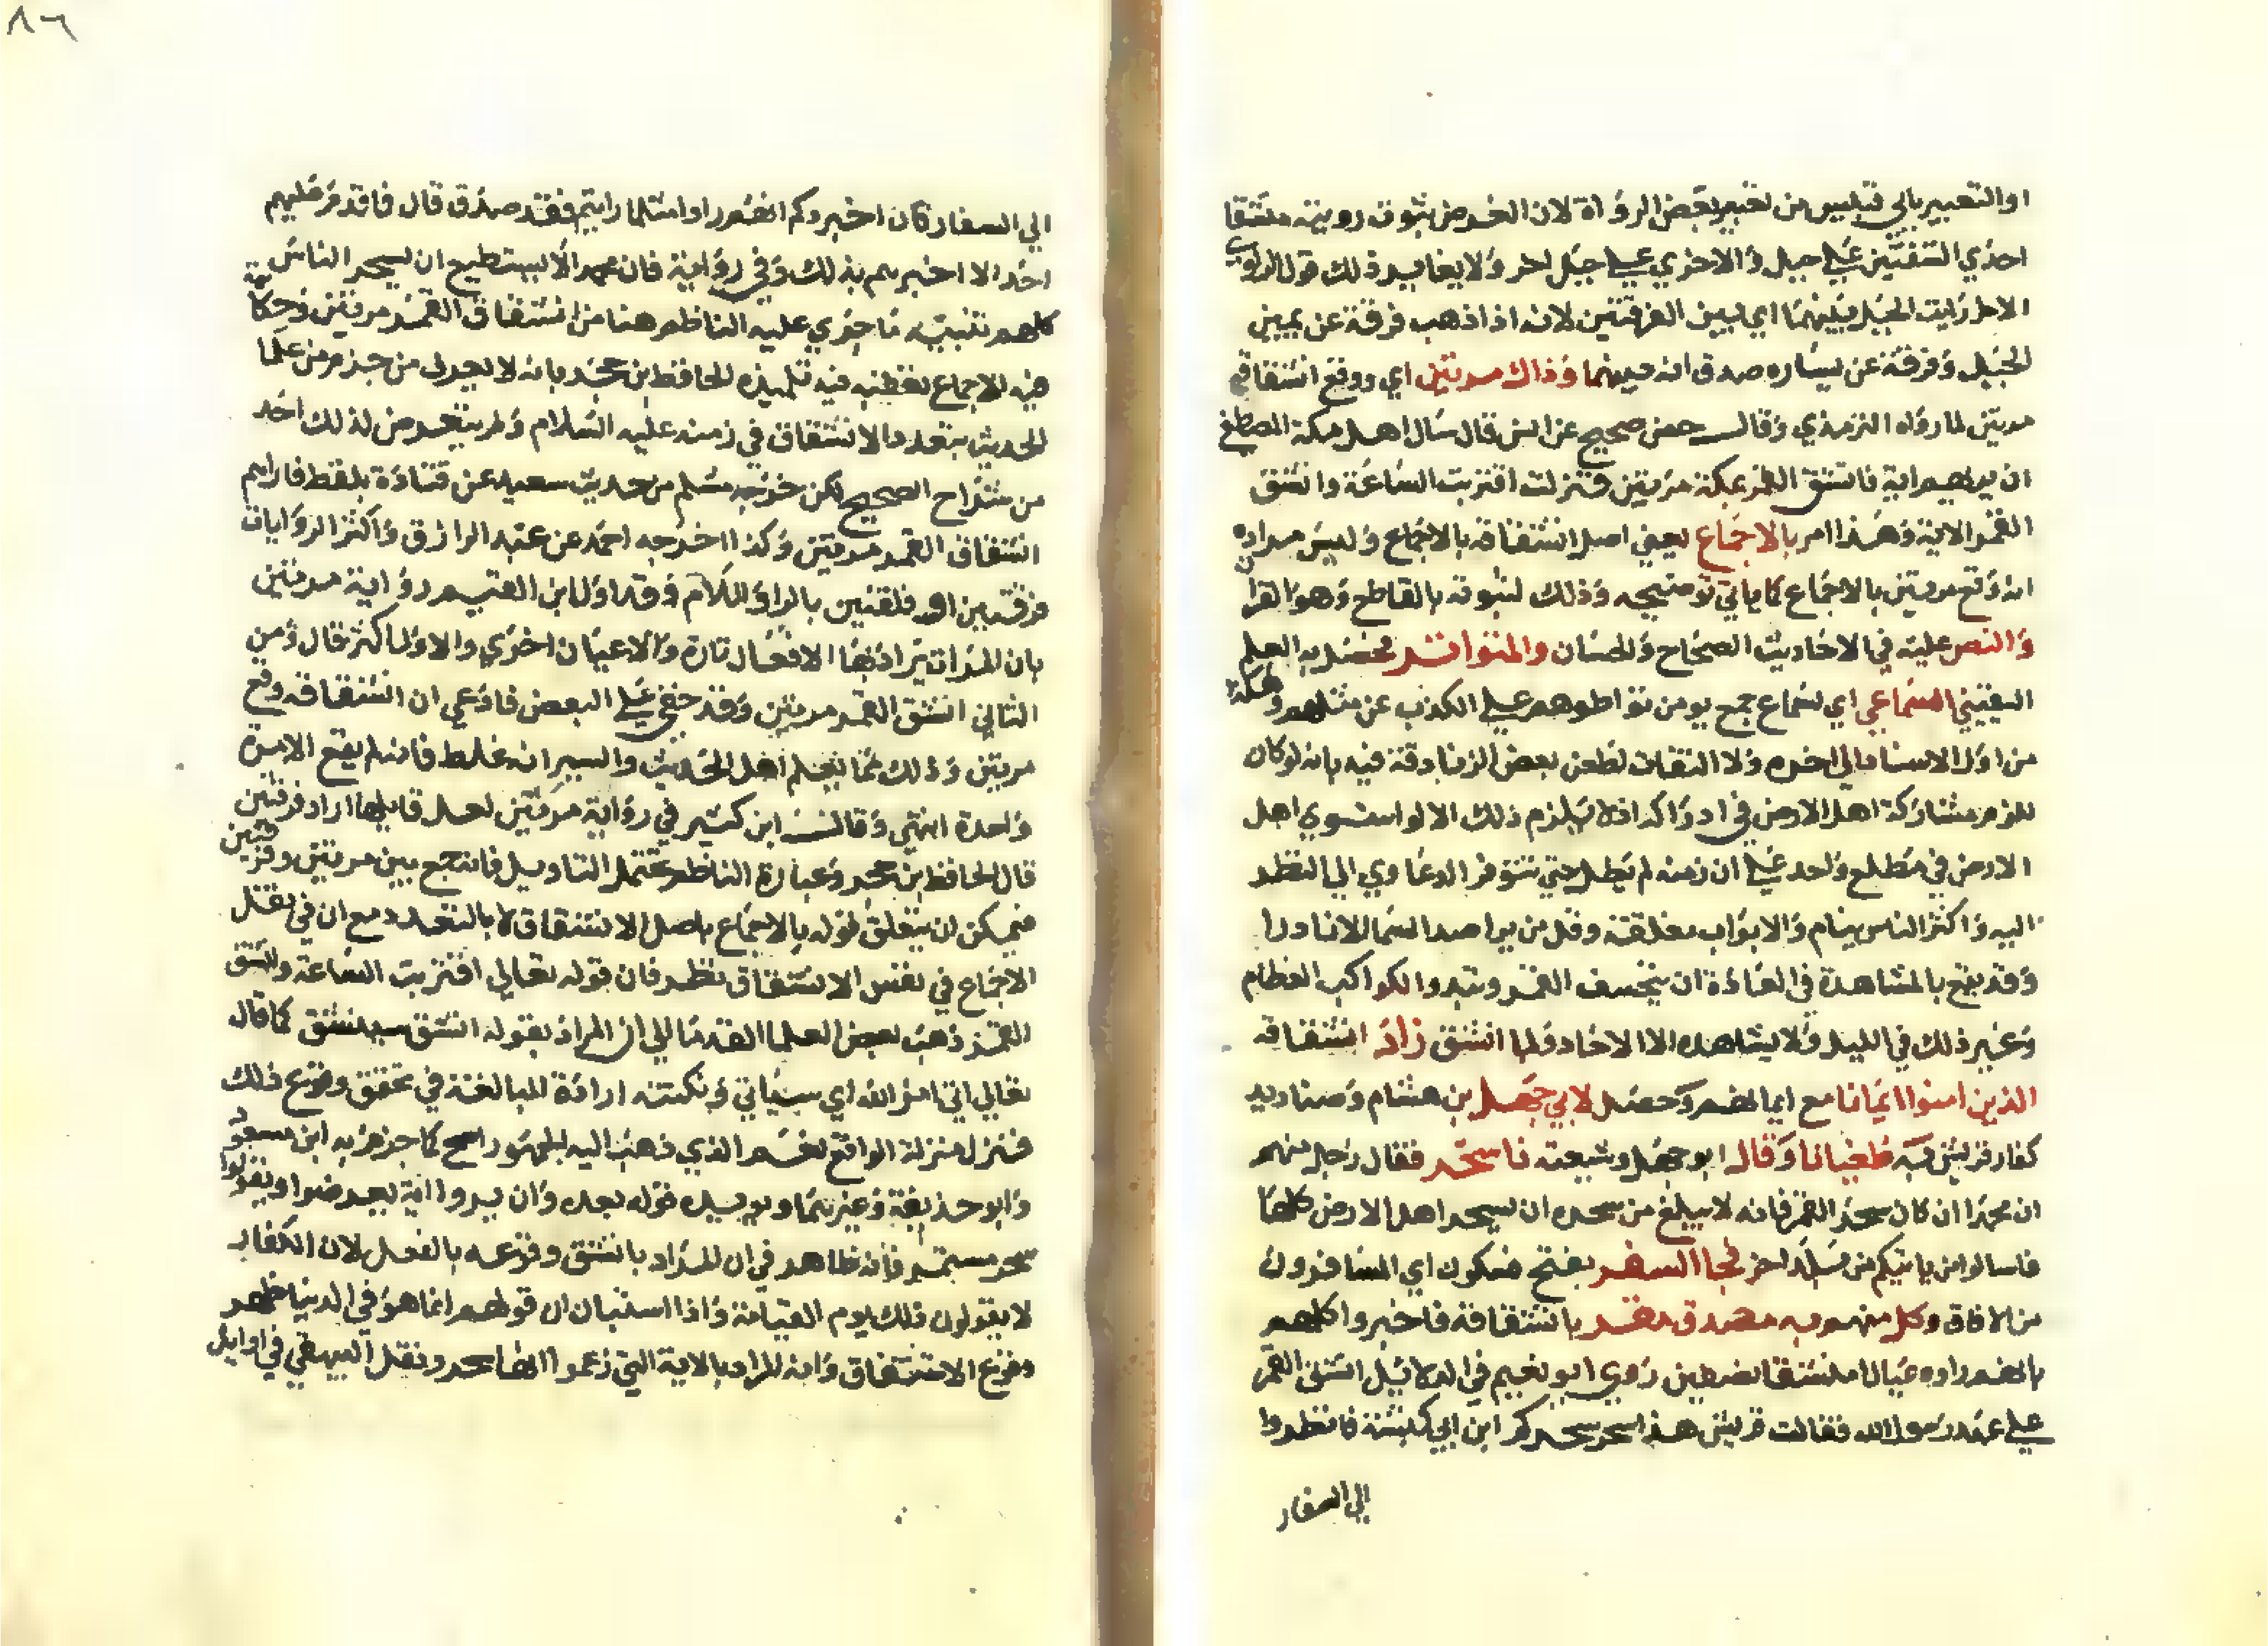 او التعبير بابي قبيس من تغيير بعض الرواة لان الغرض ثبوت رويته منشقا
احدي الشقتين علي جبل والاخري علي جبل اخر ولا يغاير ذلك قول الراوي
الاخر رايت الجبل بينهما اي بين الفرقتين لانه اذا ذهب فرقة عن يمين
الجبل وفرقة عن يساره صدق انه بينهما وذاك مرتين اي ووقع انشقاقه
مرتين لما رواه الترمذي وقال حسن صحيح عن انس قال سال اهل مكة المصطفي
ان يريهم اية فانشق القمر بمكة مرتين فنزلت اقتربت الساعة وانشق
القمر الاية وهذا امر بالاجماع يعني اصل انشقاقه بالاجماع وليس مراده
انه وقع مرتين بالاجماع كما ياتي توضيحه وذلك لثبوته بالقاطع وهو القران
والنص عليه في الاحاديث الصحاح والحسان والمتواتر محصل به العلم
اليقيني السماعي اي لسماع جمع يومن تواطوهم علي الكذب عن مثلهم وهكذا
من اول الاسناد الي اخره ولا التفات لطعن بعض الزنادقة فيه بانه لو كان
للزم مشاركة اهل الارض في ادراكه اذ لا يلزم ذلك الا لو استوي اهل
الارض في مطلع واحد علي ان زمنه لم يطل حتي تتوفر الدعاوي الي النظر
اليه واكثر الناس ينام والابواب مغلقة وقل من يراصد السما الا نادرا
وقد يقع بالمشاهدة في العادة ان ينخسف القمر وتبدو الكواكب العظام
وغير ذلك في الليل ولا يشاهده الا الاحاد ولما انشق زاد انشقاقه
الذين امنوا ايمانا مع ايمانهم وحصل لابي جهل بن هشام وصناديد
كفار قريش به طغيانا وقال ابو جهل وشيعته ذا سحر فقال رجل منهم
ان محمدا ان كان سحر القمر فانه لا يبلغ من سحره ان يسحر اهل الارض كلها
فاسالوا من ياتيكم من بلد اخر فجا السفر بفتح فسكون اي المسافرون
من الافاق وكل منهم به مصدق مقر بانشقاقه فاخبروا كلهم
بانهم راوه عيانا منشقا نصفين روي ابو نعيم في الدلايل انشق القمر
علي عهد رسول الله فقالت قريش هذا سحر سحركم ابن ابي كبشة فانظروا
الي السفار
٨٦
الي السفار فان اخبروكم انهم راوا مثلما رايتم فقد صدق قال فما قدم عليهم
احد الا اخبرهم بذلك وفي رواية فان محمدا لا يستطيع ان يسحر الناس
كلهم تنبيه ما جري عليه الناظم هنا من انشقاق القمر مرتين وحكاية
فيه الاجماع تعقبه فيه تلميذه الحافظ ابن حجر بانه لا يعرف من جزم من علما
الحديث بتعدد الانشقاق في زمنه عليه السلام ولم يتعرض لذلك احد
من شراح الصحيح لكن خرجه مسلم من حديث سعيد عن قتادة بلفظ فاراهم
انشقاق القمر مرتين وكذا اخرجه احمد عن عبد الرازق واكثر الروايات
فرقتين او فلقتين بالراو اللام وقد اول ابن القيم رواية مرتين
بان المرات يراد بها الافعال تارة والاعيان اخري والاول اكثر قال ومن
الثاني انشق القمر مرتين وقد خفي علي البعض فادعي ان انشقاقه وقع
مرتين وذلك مما يعلم اهل الحديث والسير انه غلط فانه لم يقع الا مرة
واحدة انتهي وقال ابن كثير في رواية مرتين لعل قايلها اراد فرقتين
قال الحافظ ابن حجر وعبارة الناظم تحتمل التاويل فانه جمع بين مرتين وفرقتين
فيمكن ان يتعلق قوله بالاجماع باصل الانشقاق لا بالتعدد مع ان في نقل
الاجماع في نفس الانشقاق نظر فان قوله تعالي اقتربت الساعة وانشق
القمر ذهب بعض العلما القدما الي ان المراد بقوله انشق سينشق كما قال
تعالي اتي امر الله اي سياتي ونكتته ارادة المبالغة في تحقق وقوع ذلك
فنزل منزلة الواقع نعم الذي ذهب اليه الجمهور اصح كما جزم به ابن مسعود
وابو حذيفة وغيرهما ويويده قوله بعده وان يروا اية يعرضوا ويقولوا
سحر مستمر فانه ظاهر في ان المراد بانشق وقوعه بالفعل لان الكفار
لا يقولون ذلك يوم القيامة واذا استبان ان قولهم انما هو في الدنيا ظهر
وقوع الانشقاق وانه المراد بالاية التي زعموا انها سحر ونقل البيهقي في اوايل